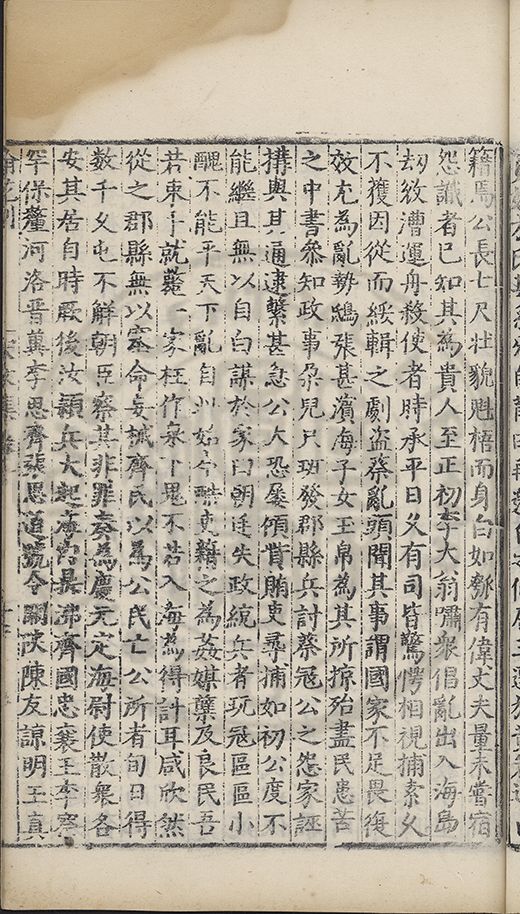 籍焉公長七尺壯貌魁梧而身白如瓠有偉丈夫量未嘗宿
怨識者已知其為貴人至正初李大翁嘯衆倡亂出入海島
劫敚漕運舟殺使者時承平日久有司皆驚愕相視捕索久
不獲因從而綏輯之劇盗蔡亂頭聞其事謂國家不足畏復
效尤為亂勢鴟張甚濵海子女玉帛為其所掠殆盡民患苦
之中書叅知政事朶兒只班發郡縣兵討蔡冦公之怨家誣
搆與其通逮繫甚急公大恐屢傾貲賄吏尋捕如初公度不
能繼且無以自白謀於家曰朝廷失政統兵者玩冦區區小
醜不能平天下亂自此始今酷吏籍之為姦媒蘖及良民吾
若束手就斃一家枉作泉下鬼不若入海為得計耳咸欣然
從之郡縣無以塞命妄械齊民以為公民亡公所者旬日得
数千久屯不解朝臣察其非罪奏為慶元定海尉使散衆各
安其居自時厥後汝潁兵大起海内鼎沸齊國忠襄王李察
罕保釐河洛晋冀李思齊張思道號令關陝陳友諒明玉真